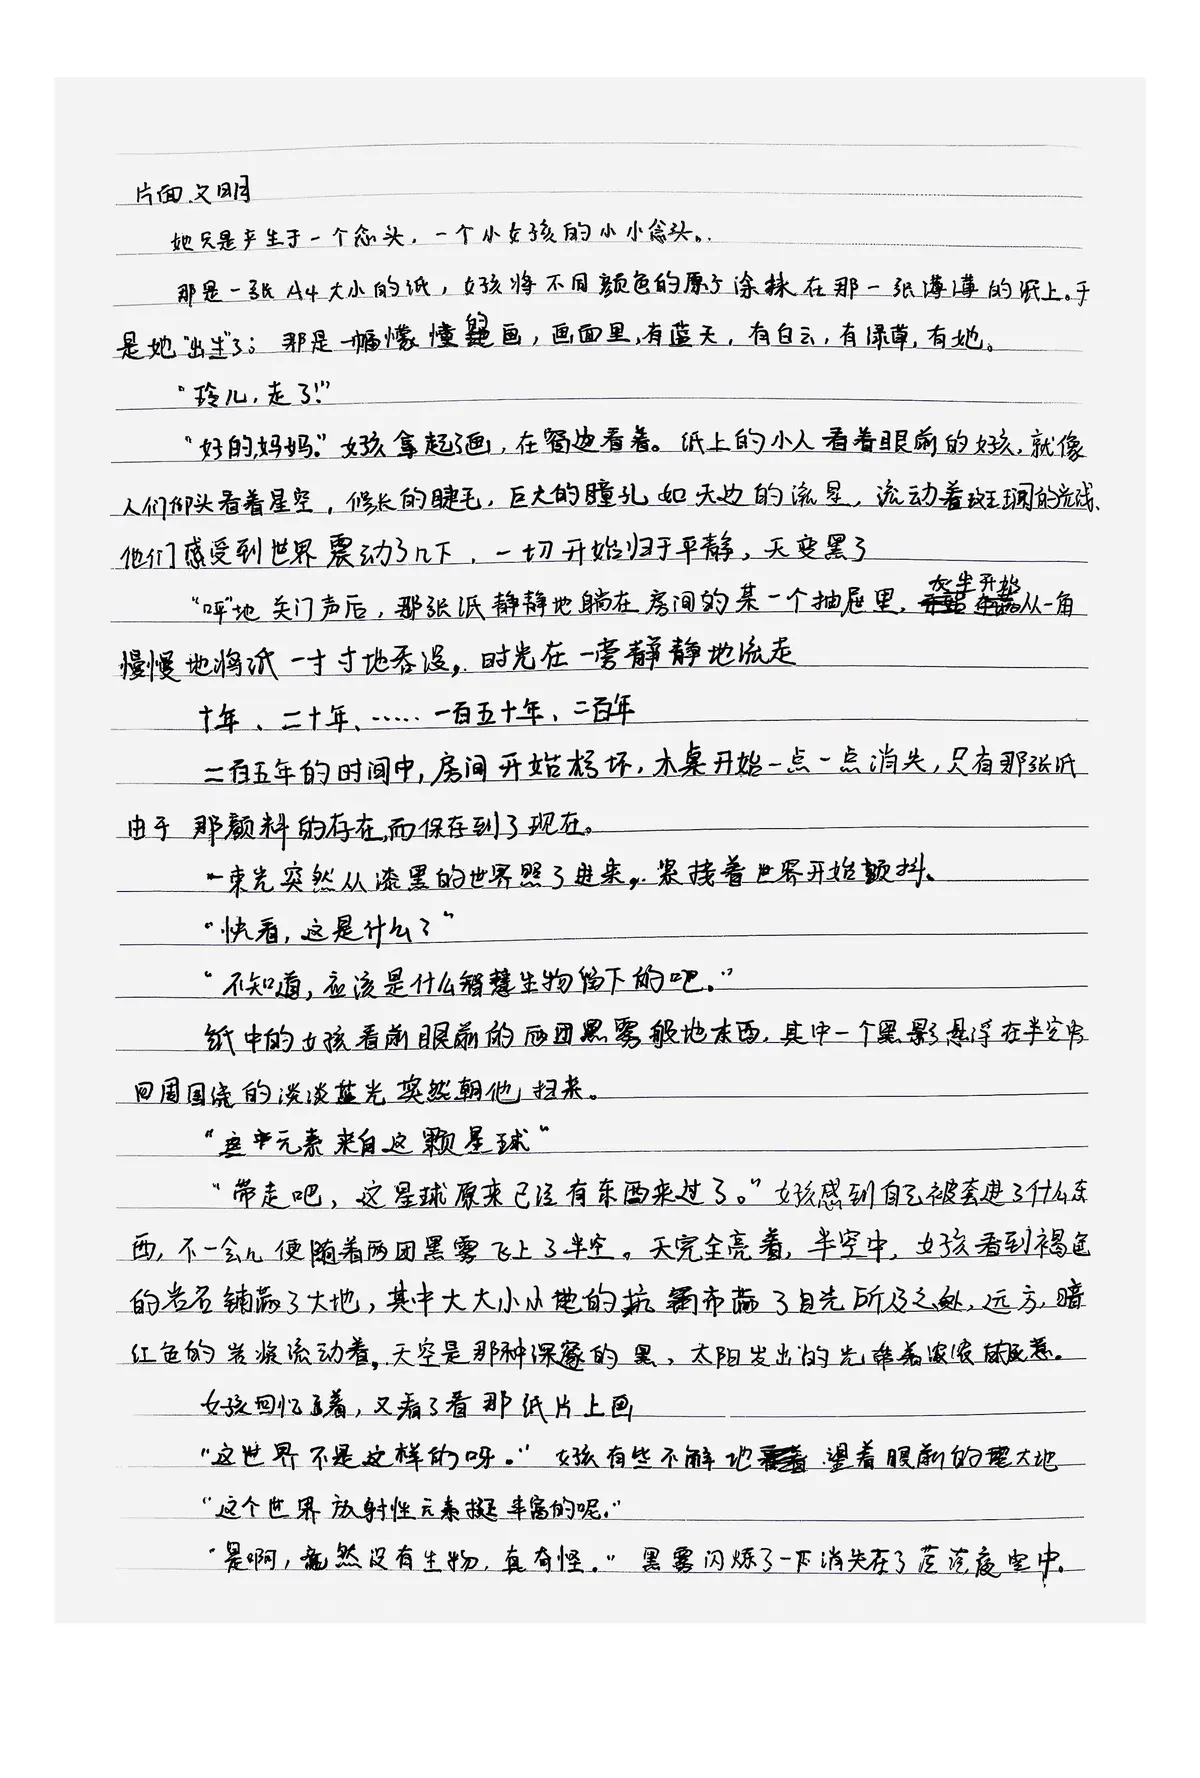 片面文明
她只是产生于一个念头，一个小女孩的小小念头。
那是一张A4大小的纸，女孩将不同颜色的原子涂抹在那一张薄薄的纸上。于
是她“出生”了；那是一幅懞懂的画，画面里，有蓝天，有白云，有绿草，有她。
“玲儿，走了！”
“好的，妈妈。”女孩拿起了画，在窗边看着。纸上的小人看着眼前的女孩，就像
人们仰头看着星空，修长的睫毛，巨大的瞳孔如天边的流星，流动着斑斓的光线、
他们感受到世界震动了几下，一切开始归于平静，天变黑了
“呯”地关门声后，那张纸静静地躺在房间的某一个抽屉里，灰尘开始从一角
慢慢地将纸一寸寸地吞没，时光在一旁静静地流走
十年、二十年、……一百五十年、二百年
二百五年的时间中，房间开始朽坏，木桌开始一点一点消失，只有那张纸
由于那颜料的存在，而保存到了现在。
一束光突然从漆黑的世界照了进来，紧接着世界开始颤抖、
“快看，这是什么？”
“不知道，应该是什么智慧生物留下的吧。”
纸中的女孩看前眼前的两团黑雾般地东西，其中一个黑影悬浮在半空中
四周围绕的淡淡蓝光突然朝他扫来。
元素来自这颗星球”
“带走吧，这星球原来已没有东西来过了。”女孩感到自己被套进了什么东
西，不一会儿便随着两团黑雾飞上了半空。天完全亮着，半空中，女孩看到褐色
的岩石铺满了大地，其中大大小小地的坑洞布满了目光所及之处，远方，暗
红色的岩浆流动着，天空是那种深邃的黑、太阳发出的光带着浓浓
女孩回忆着，又看了看那纸片上画
“这世界不是这样的呀。”女孩有些不解地望着眼前的大地
“这个世界放射性元素挺丰富的呢。”
“是啊，竟然没有生物，真奇怪。”黑雾闪烁了一下消失在了茫茫夜空中。